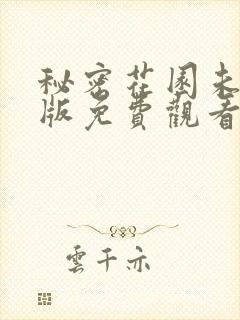 秘密花園未
版免費觀看
雲千亦